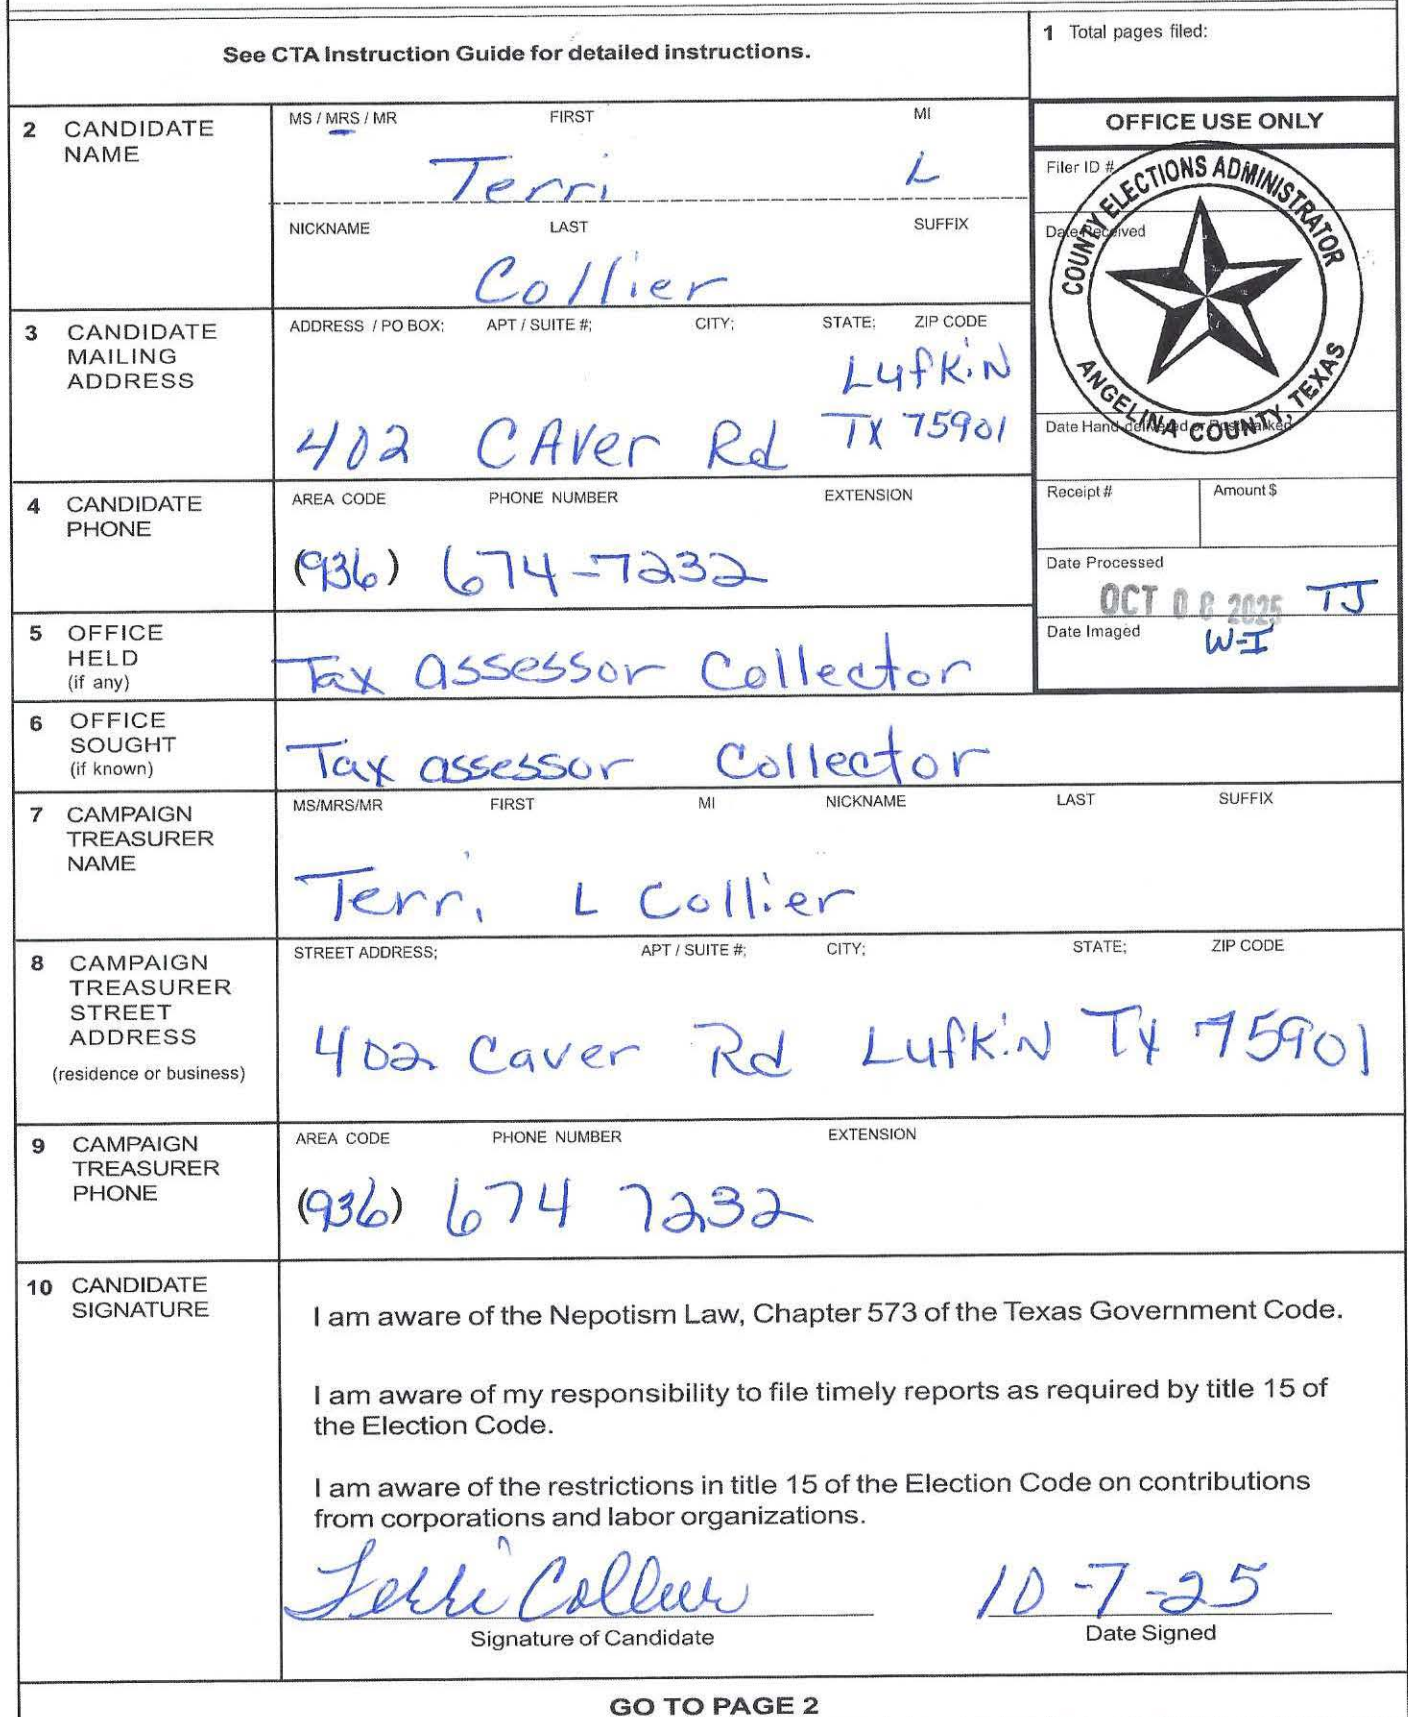 See CTA Instruction Guide for detailed instructions.
1 Total pages filed:
2 CANDIDATE NAME
MS / MRS / MR FIRST MI
Terri L
NICKNAME LAST SUFFIX
Collier
OFFICE USE ONLY
Filer ID #
Date Received
COUNTY ELECTIONS ADMINISTRATOR
ANGELINA COUNTY, TEXAS
Date Hand-delivered or Postmarked
Receipt # Amount $
Date Processed
OCT 08 2025 TJ
Date Imaged
W-I
3 CANDIDATE MAILING ADDRESS
ADDRESS / PO BOX; APT / SUITE #; CITY; STATE; ZIP CODE
Lufkin
402 CAver Rd TX 75901
4 CANDIDATE PHONE
AREA CODE PHONE NUMBER EXTENSION
(936) 674-7232
5 OFFICE HELD (if any)
Tax assessor Collector
6 OFFICE SOUGHT (if known)
Tax assessor Collector
7 CAMPAIGN TREASURER NAME
MS/MRS/MR FIRST MI NICKNAME LAST SUFFIX
Terri L Collier
8 CAMPAIGN TREASURER STREET ADDRESS (residence or business)
STREET ADDRESS; APT / SUITE #; CITY; STATE; ZIP CODE
402 Caver Rd Lufkin TX 75901
9 CAMPAIGN TREASURER PHONE
AREA CODE PHONE NUMBER EXTENSION
(936) 674 7232
10 CANDIDATE SIGNATURE
I am aware of the Nepotism Law, Chapter 573 of the Texas Government Code.
I am aware of my responsibility to file timely reports as required by title 15 of
the Election Code.
I am aware of the restrictions in title 15 of the Election Code on contributions
from corporations and labor organizations.
Terri Collier 10-7-25
Signature of Candidate Date Signed
GO TO PAGE 2